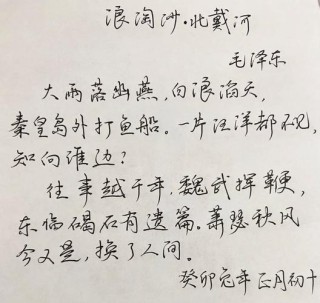 浪淘沙·北戴河
毛泽东
大雨落幽燕,白浪滔天,
秦皇岛外打鱼船。一片汪洋都不见,
知向谁边?
往事越千年,魏武挥鞭,
东临碣石有遗篇。萧瑟秋风
今又是,换了人间。
癸卯兔年 正月初十